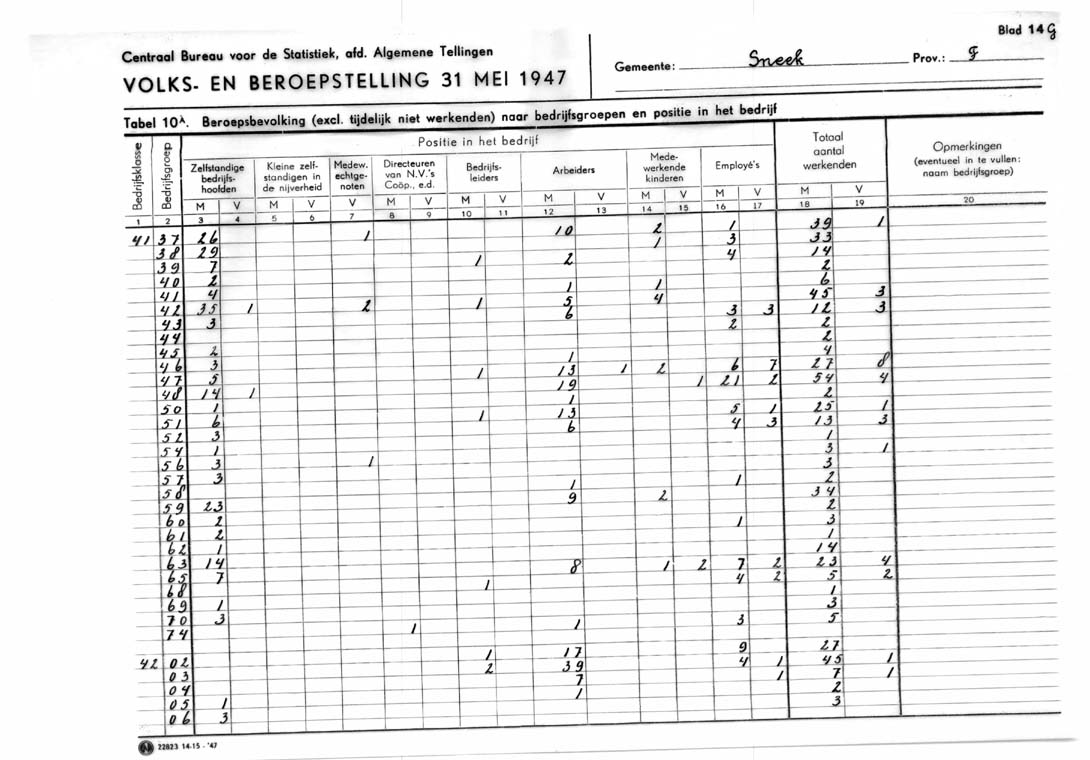 Blad 14 G
Centraal Bureau voor de Statistiek, afd. Algemene Tellingen
Gemeente: Sneek Prov.: F
VOLKS- EN BEROEPSTELLING 31 MEI 1947
Tabel 10A. Beroepsbevolking (excl. tijdelijk niet werkenden) naar bedrijfsgroepen en positie in het bedrijf
Bedrijfsklasse Bedrijfsgroep Positie in het bedrijf Totaal aantal werkenden Opmerkingen (eventueel in te vullen: naam bedrijfsgroep)
Zelfstandige bedrijfs- hoofden Kleine zelf- standigen in de nijverheid Medew. echtge- noten Directeuren van N.V.'s Coöp., e.d. Bedrijfs- leiders Arbeiders Mede- werkende kinderen Employé's
M V M V V M V M V M V M V M V M V
1 2 3 4 5 6 7 8 9 10 11 12 13 14 15 16 17 18 19 20
41 37 26 1 10 2 1 39 1
38 29 1 3 33
39 7 1 2 4 14
40 2 2
41 4 1 1 6
42 35 1 2 1 5 4 45 3
43 3 6 3 3 12 3
44 2 2
45 2 2
46 3 1 4
47 5 1 13 1 2 6 7 27 8
48 14 1 19 1 21 2 54 4
50 1 1 2
51 6 1 13 5 1 25 1
52 3 6 4 3 13 3
54 1 1
56 3 1 3 1
57 3 3
58 1 1 2
59 23 9 2 34
60 2 2
61 2 1 3
62 1 1
63 14 14
65 7 8 1 2 7 2 23 4
68 1 4 2 5 2
69 1 1
70 3 3
74 1 1 3 5
42 02 1 17 9 27
03 2 39 4 1 45 1
04 7 1 7 1
05 1 1 2
06 3 3
22823 14-15 - '47